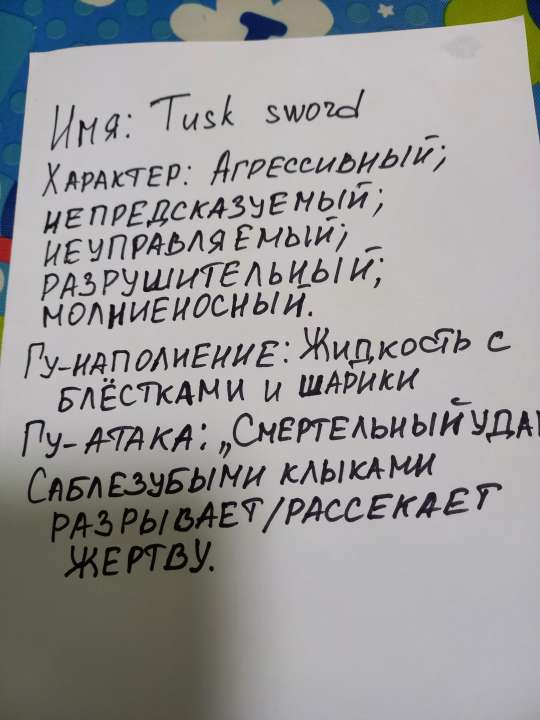 Имя: Tusk sword
Характер: Агрессивный;
непредсказуемый;
неуправляемый;
разрушительный;
молниеносный.
Гу-наполнение: Жидкость с
блёстками и шарики
Гу-атака: „Смертельный удар
Саблезубыми клыками
разрывает/рассекает
жертву.